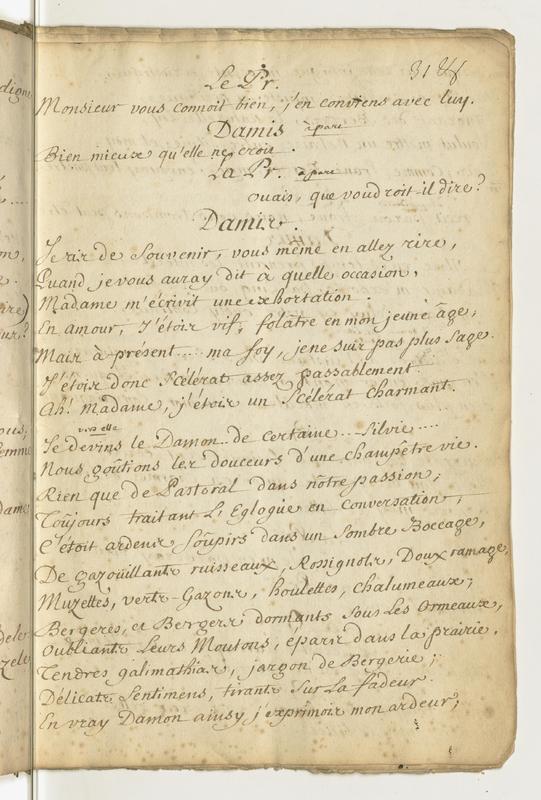 31
Le Pr.
Monsieur vous connoit bien, j'en conviens avec luy.
Damis à part
Bien mieux qu'elle ne croit.
La Pr. à part
ouais, que voudroit-il dire?
Damis.
Je ris de Souvenir, vous même en allez rire,
Quand je vous auray dit à quelle occasion,
Madame m'écrivit une exhortation.
En amour, J'étois vif, folâtre en mon jeune âge,
Mais à présent..... ma foy, je ne suis pas plus Sage.
J'étois donc Scélérat assez passablement
Ah! Madame, j'étois un Scélérat charmant.
vers elle
Je devins le Damon.. de certaine.... Silvie....
Nous goûtions les douceurs d'une champêtre vie.
Rien que de Pastoral dans nôtre passion;
Toûjours traitant L'Eglogue en Conversation,
C'étoit ardens Soûpirs dans un Sombre Boccage,
De gazoüillants ruisseaux, Rossignols, Doux ramage,
Muzettes, verts-Gazons, houlettes, chalumeaux;
Bergeres, et Bergers dormants Sous Les Ormeaux,
Oubliants Leurs Moutons, epars dans la prairie,
Tendres galimathias, jargon de Bergerie;
Délicats Sentimens, tirants Sur La fadeur.
En vray Damon ainsy j'exprimois mon ardeur;